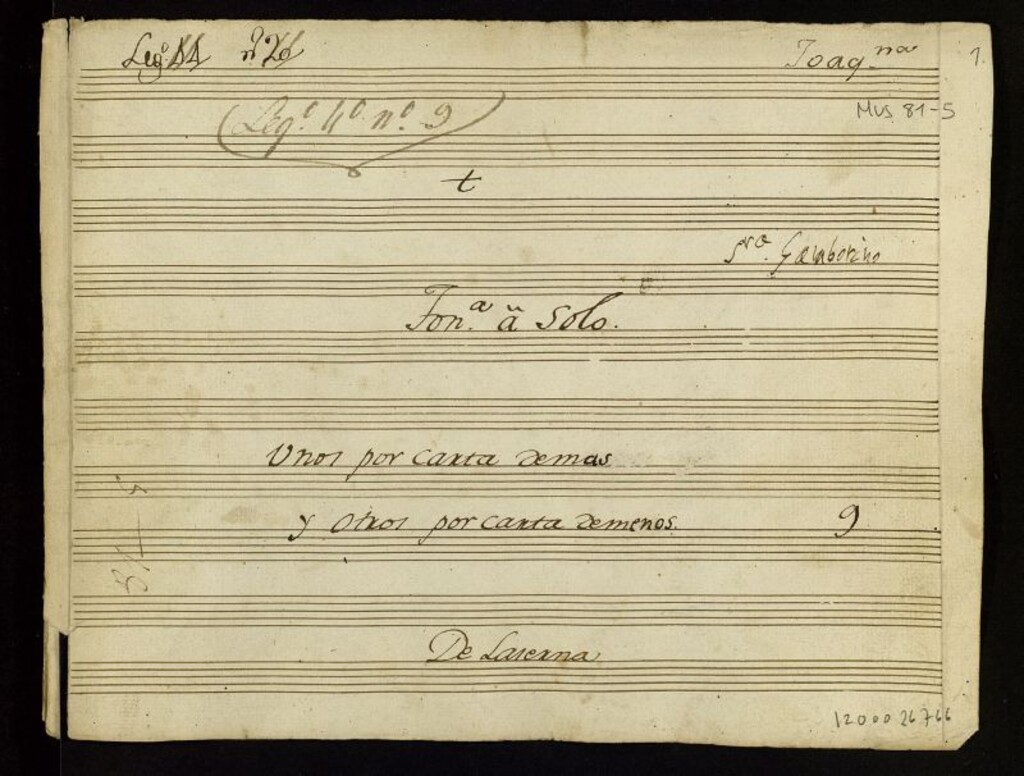 Leg.º 14 nº 26
Joaq.na
1.
Leg.º 4º nº. 9
Mus 81-5
t
Sra. Gamborino
Ton.a â Solo.
Unos por carta demas
y otros por carta demenos.
9
81-5
De Laserna
1200026766